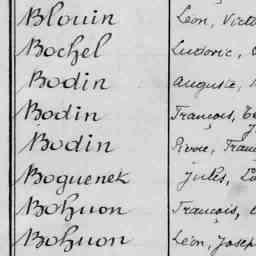 Blouin Léon, Victo
Bochel Ludovic,
Bodin Auguste,
Bodin François,
Bodin Pierre, Fran
Boguenek Jules,
Bohuon François,
Bohuon Léon, Josep